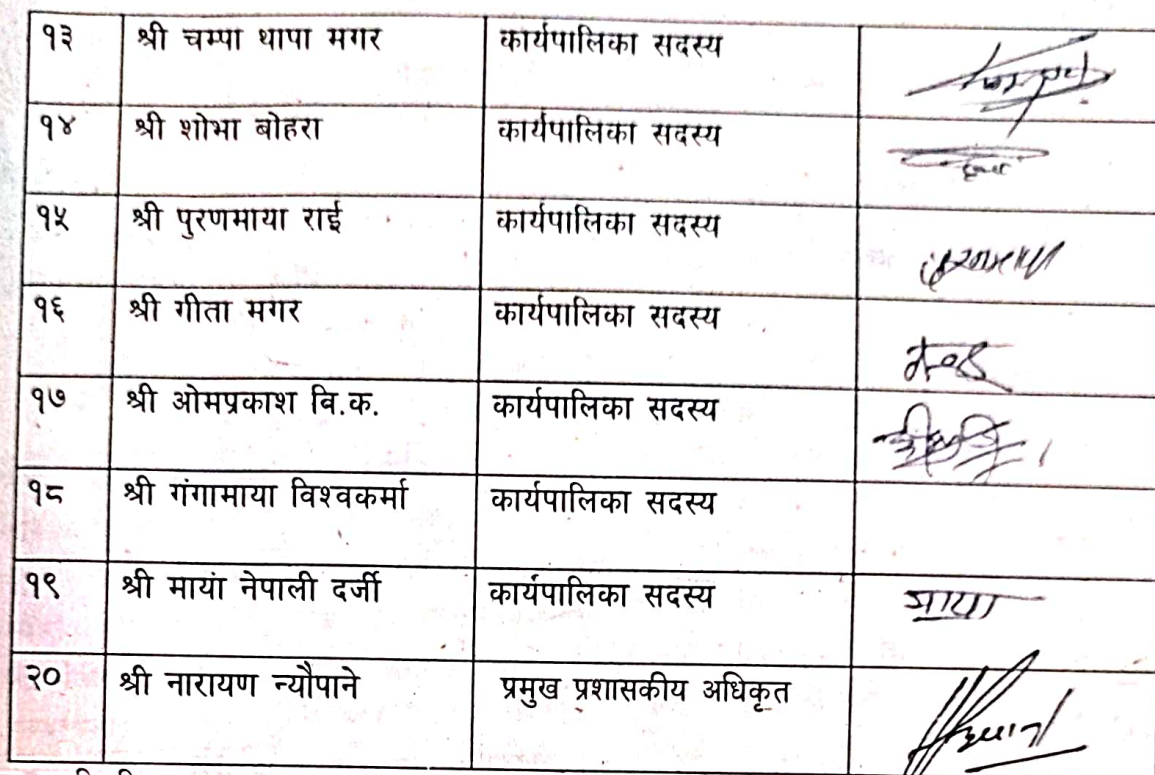 १३ श्री चम्पा थापा मगर कार्यपालिका सदस्य
१४ श्री शोभा बोहरा कार्यपालिका सदस्य
१५ श्री पुरणमाया राई कार्यपालिका सदस्य
१६ श्री गीता मगर कार्यपालिका सदस्य
१७ श्री ओमप्रकाश वि.क. कार्यपालिका सदस्य
१८ श्री गंगामाया विश्वकर्मा कार्यपालिका सदस्य
१९ श्री माया नेपाली दर्जी कार्यपालिका सदस्य माया
२० श्री नारायण न्यौपाने प्रमुख प्रशासकीय अधिकृत